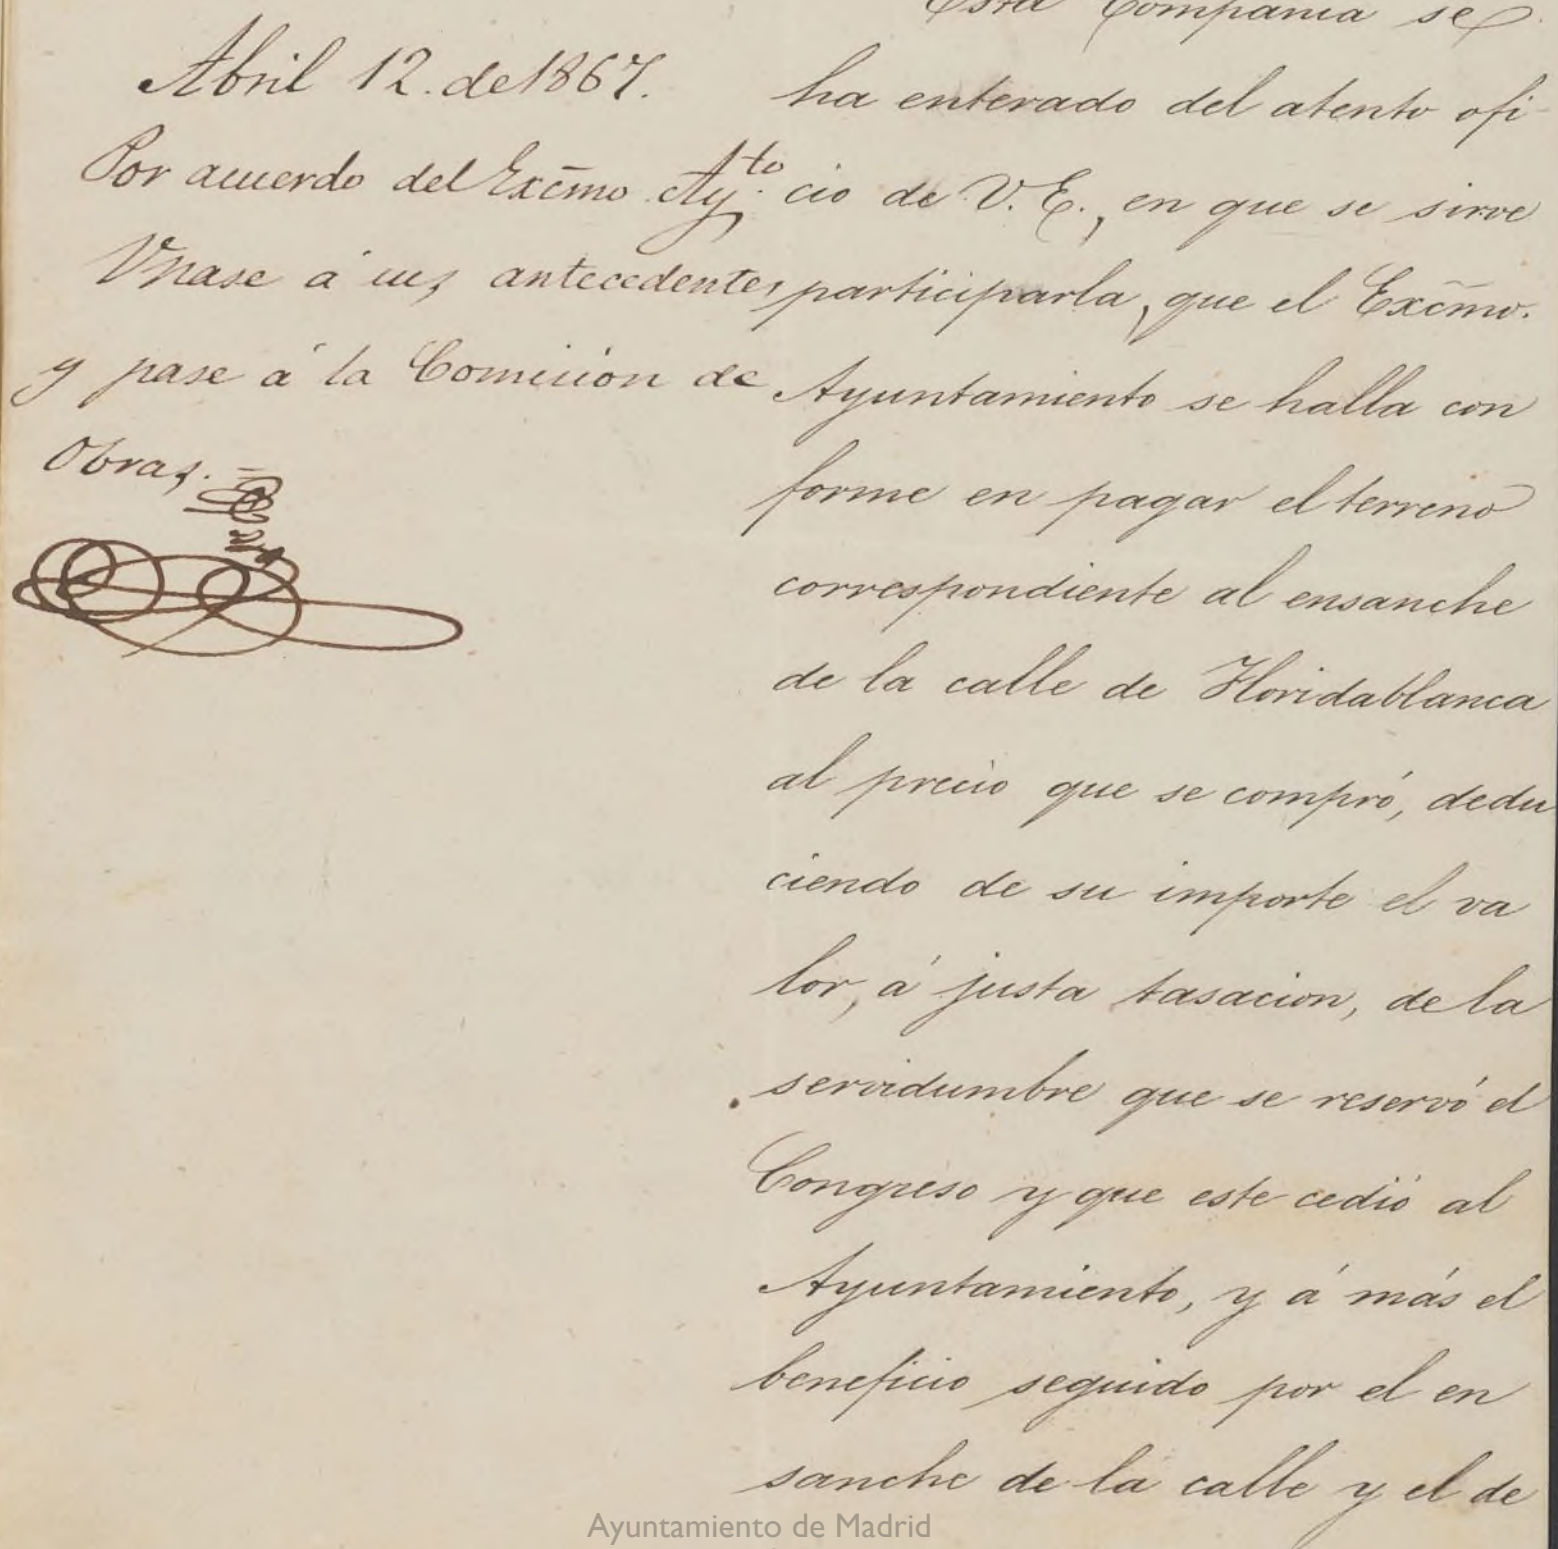 Abril 12. de 1867.
Por acuerdo del Excmo Ay.to
Unase á sus antecedentes
y pase á la Comision de
Obras.
Esta Compañia se
ha enterado del atento ofi-
cio de V. E., en que se sirve
participarla, que el Excmo.
Ayuntamiento se halla con
forme en pagar el terreno
correspondiente al ensanche
de la calle de Floridablanca
al precio que se compró, dedu
ciendo de su importe el va
lor, á justa tasacion, de la
servidumbre que se reservó el
Congreso y que este cedió al
Ayuntamiento, y á más el
beneficio seguido por el en
sanche de la calle y el de
Ayuntamiento de Madrid